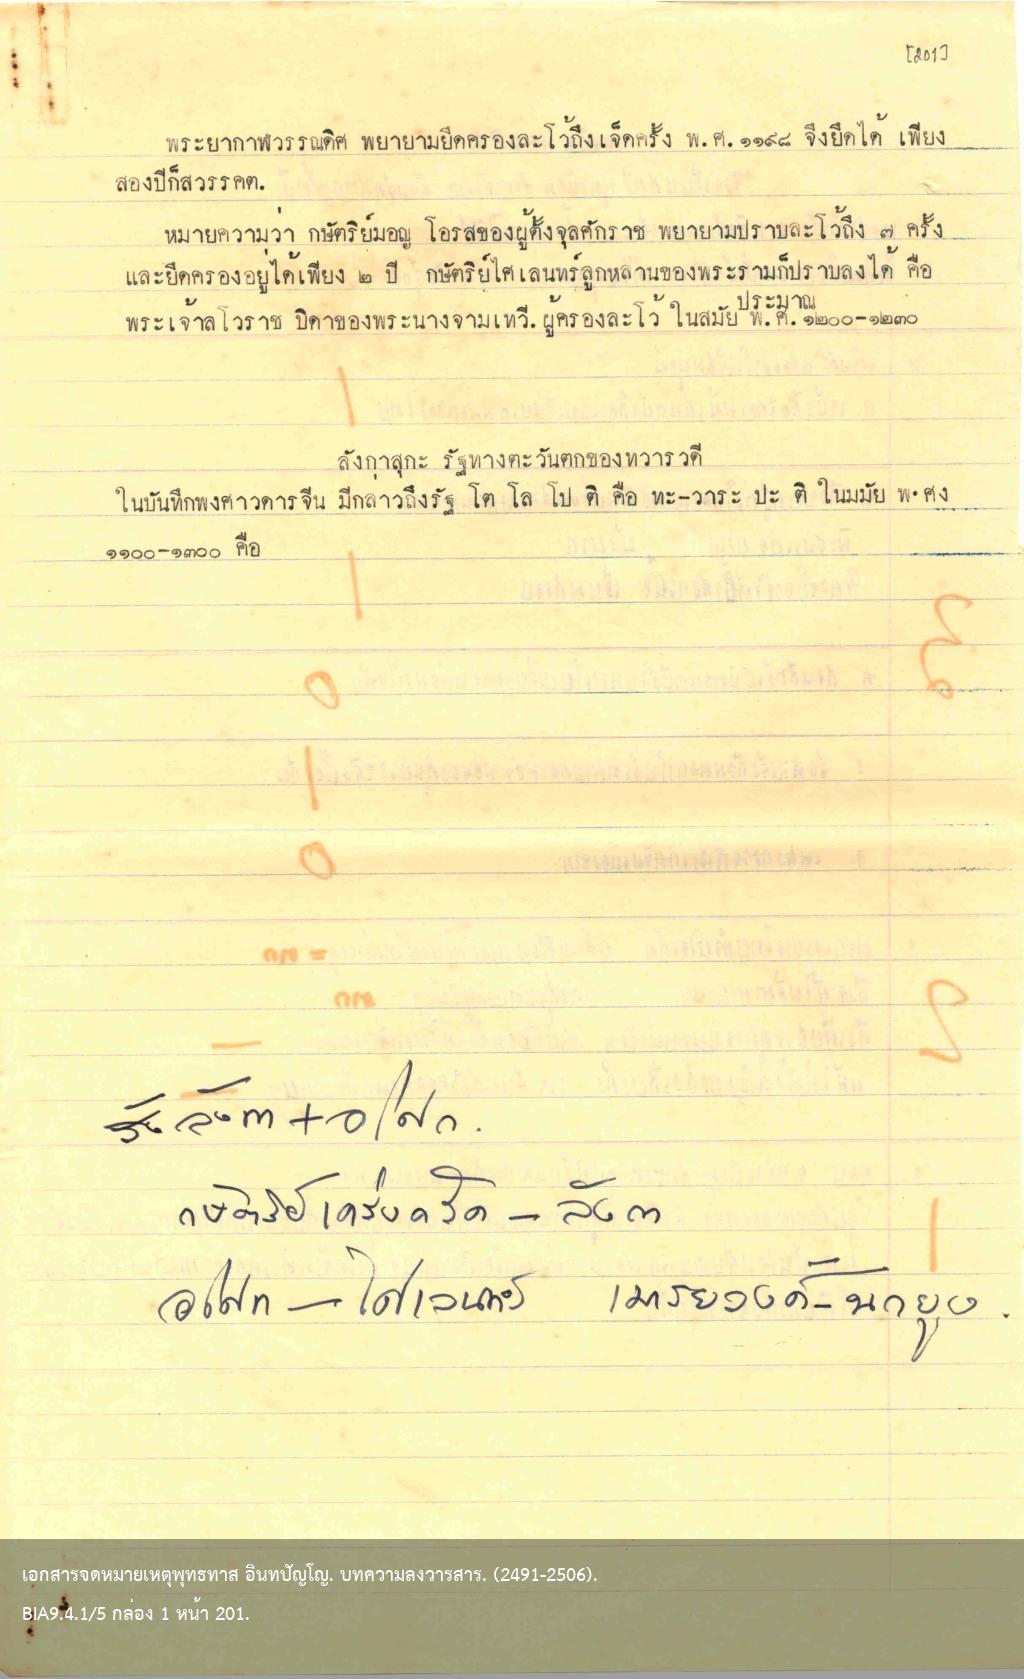 [201]
พระยากาฬวรรณดิศ พยายามยึดครองละโว้ถึงเจ็ดครั้ง พ.ศ. ๑๑๙๘ จึงยึดได้ เพียง
สองปีก็สวรรคต.
หมายความว่า กษัตริย์มอญ โอรสของผู้ตั้งจุลศักราช พยายามปราบละโว้ถึง ๗ ครั้ง
และยึดครองอยู่ได้เพียง ๒ ปี กษัตริย์ไศเลนทร์ลูกหลานของพระรามก็ปราบลงได้ คือ
ประมาณ
พระเจ้าลโวราช บิดาของพระนางจามเทวี. ผู้ครองละโว้ ในสมัย พ.ศ. ๑๒๐๐-๑๒๓๐
ลังกาสุกะ รัฐทางตะวันตกของทวารวดี
ในบันทึกพงศาวดารจีน มีกล่าวถึงรัฐ โต โล โป ติ คือ ทะ-วาระ ปะ ติ ในมมัย พ.ศง
๑๑๐๐-๑๓๐๐ คือ
ลังกา + อโศก.
กษัตริย์เคร่งครัด - ลังกา
อโศก - ไศเลนทร์ เมารยวงศ์ - นกยูง.
เอกสารจดหมายเหตุพุทธทาส อินทปัญโญ. บทความลงวารสาร. (2491-2506).
BIA9.4.1/5 กล่อง 1 หน้า 201.